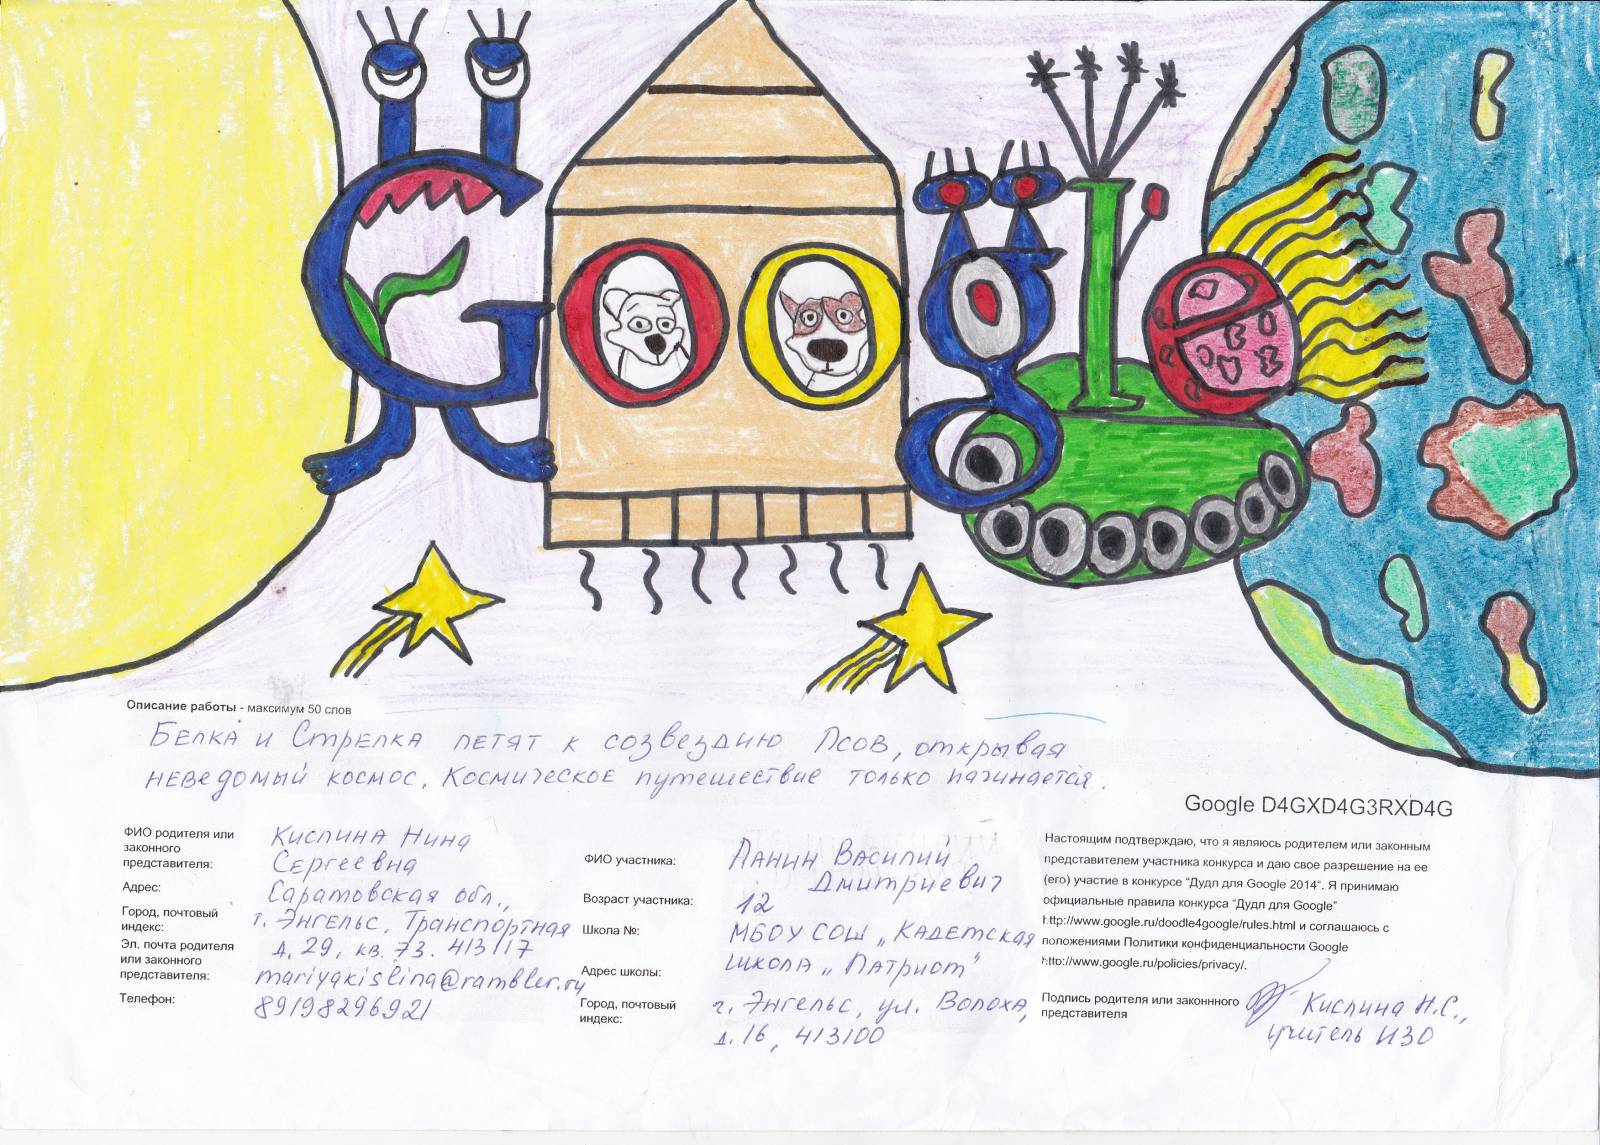 Google
Описание работы - максимум 50 слов
Белка и Стрелка летят к созвездию Псов, открывая
неведомый космос. Космическое путешествие только начинается.
Google D4GXD4G3RXD4G
ФИО родителя или
законного
представителя:
Кислина Нина
Сергеевна
Адрес:
Саратовская обл.,
Город, почтовый
индекс:
г. Энгельс, Транспортная
д. 29, кв. 73. 413117
Эл. почта родителя
или законного
представителя:
mariyakislina@rambler.ru
Телефон:
89198296921
ФИО участника:
Панин Василий
Дмитриевич
Возраст участника:
12
Школа №:
МБОУ СОШ „Кадетская
школа „Патриот"
Адрес школы:
Город, почтовый
индекс:
г. Энгельс, ул. Волоха,
д. 16, 413100
Настоящим подтверждаю, что я являюсь родителем или законным
представителем участника конкурса и даю свое разрешение на ее
(его) участие в конкурсе “Дудл для Google 2014“. Я принимаю
официальные правила конкурса “Дудл для Google”
http://www.google.ru/doodle4google/rules.html и соглашаюсь с
положениями Политики конфиденциальности Google
http://www.google.ru/policies/privacy/.
Подпись родителя или законнного
представителя
Кислина Н.С.,
учитель ИЗО